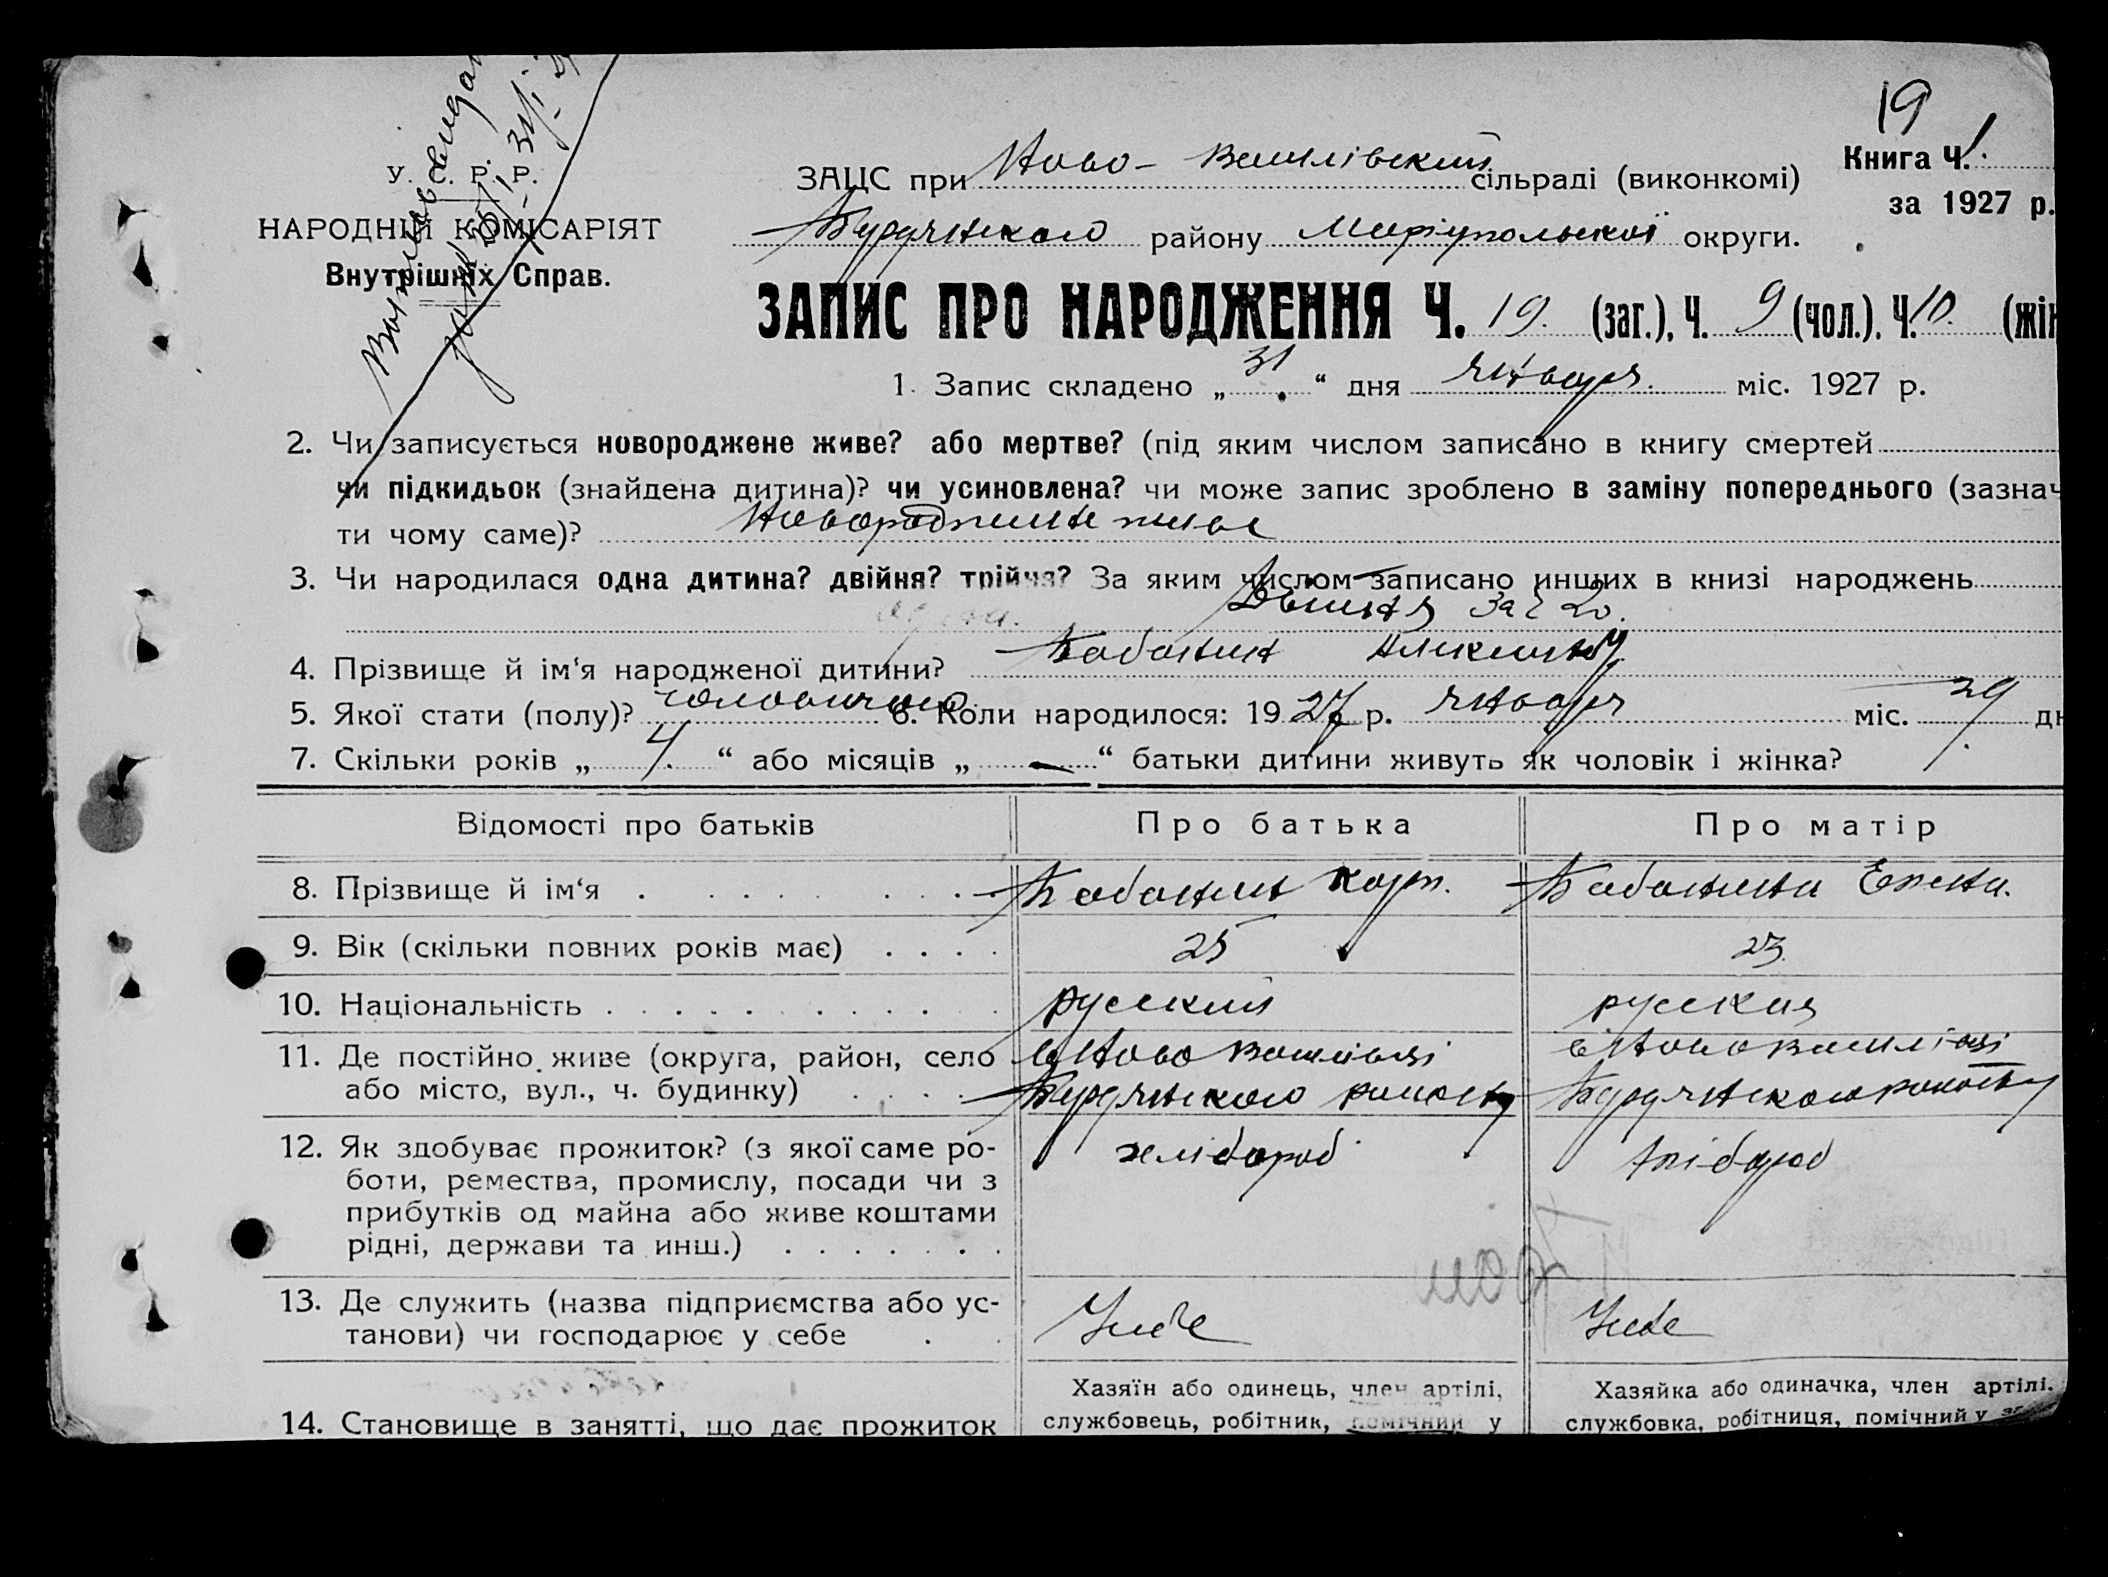 19
У. С. Р. Р.
НАРОДНІЙ КОМІСАРІЯТ
Внутрішніх Справ.
Книга Ч. 1.
за 1927 р.
ЗАЦС при Ново-Василівский сільраді (виконкомі)
Бердянского району Маріупольскої округи.
ЗАПИС ПРО НАРОДЖЕННЯ Ч. 19. (заг.), Ч. 9 (чол.). Ч. 10. (жін
1. Запис складено „31.“ дня января. міс. 1927 р.
2. Чи записується новороджене живе? або мертве? (під яким числом записано в книгу смертей
чи підкидьок (знайдена дитина)? чи усиновлена? чи може запис зроблено в заміну попереднього (зазнач
ти чому саме)? живе
3. Чи народилася одна дитина? двійня? трійня? За яким числом записано инших в книзі народжень
Двийня за ч 20.
4. Прізвище й ім‘я народженої дитини? Бабанин
5. Якої стати (полу)? чоловичого 6. Коли народилося: 1927 р. января міс. 29 дн
7. Скільки років „4.“ або місяців „—“ батьки дитини живуть як чоловік і жінка?
Відомості про батьків Про батька Про матір
8. Прізвище й ім‘я Бабанин Карп. Бабанина Елена.
9. Вік (скільки повних років має) 25 23
10. Національність русский русская
11. Де постійно живе (округа, район, село с Ново Василівці с Ново Василівці
або місто, вул., ч. будинку) Бердянского району Бердянского району
12. Як здобуває прожиток? (з якої саме ро- хлібороб хлібороб
боти, ремества, промислу, посади чи з
прибутків од майна або живе коштами
рідні, держави та инш.)
13. Де служить (назва підприємства або ус-
танови) чи господарює у себе У себе У себе
Хазяїн або одинець, член артілі, Хазяйка або одиначка, член артілі.
14. Становище в занятті, що дає прожиток службовець, робітник, помічний у службовка, робітниця, помічний у